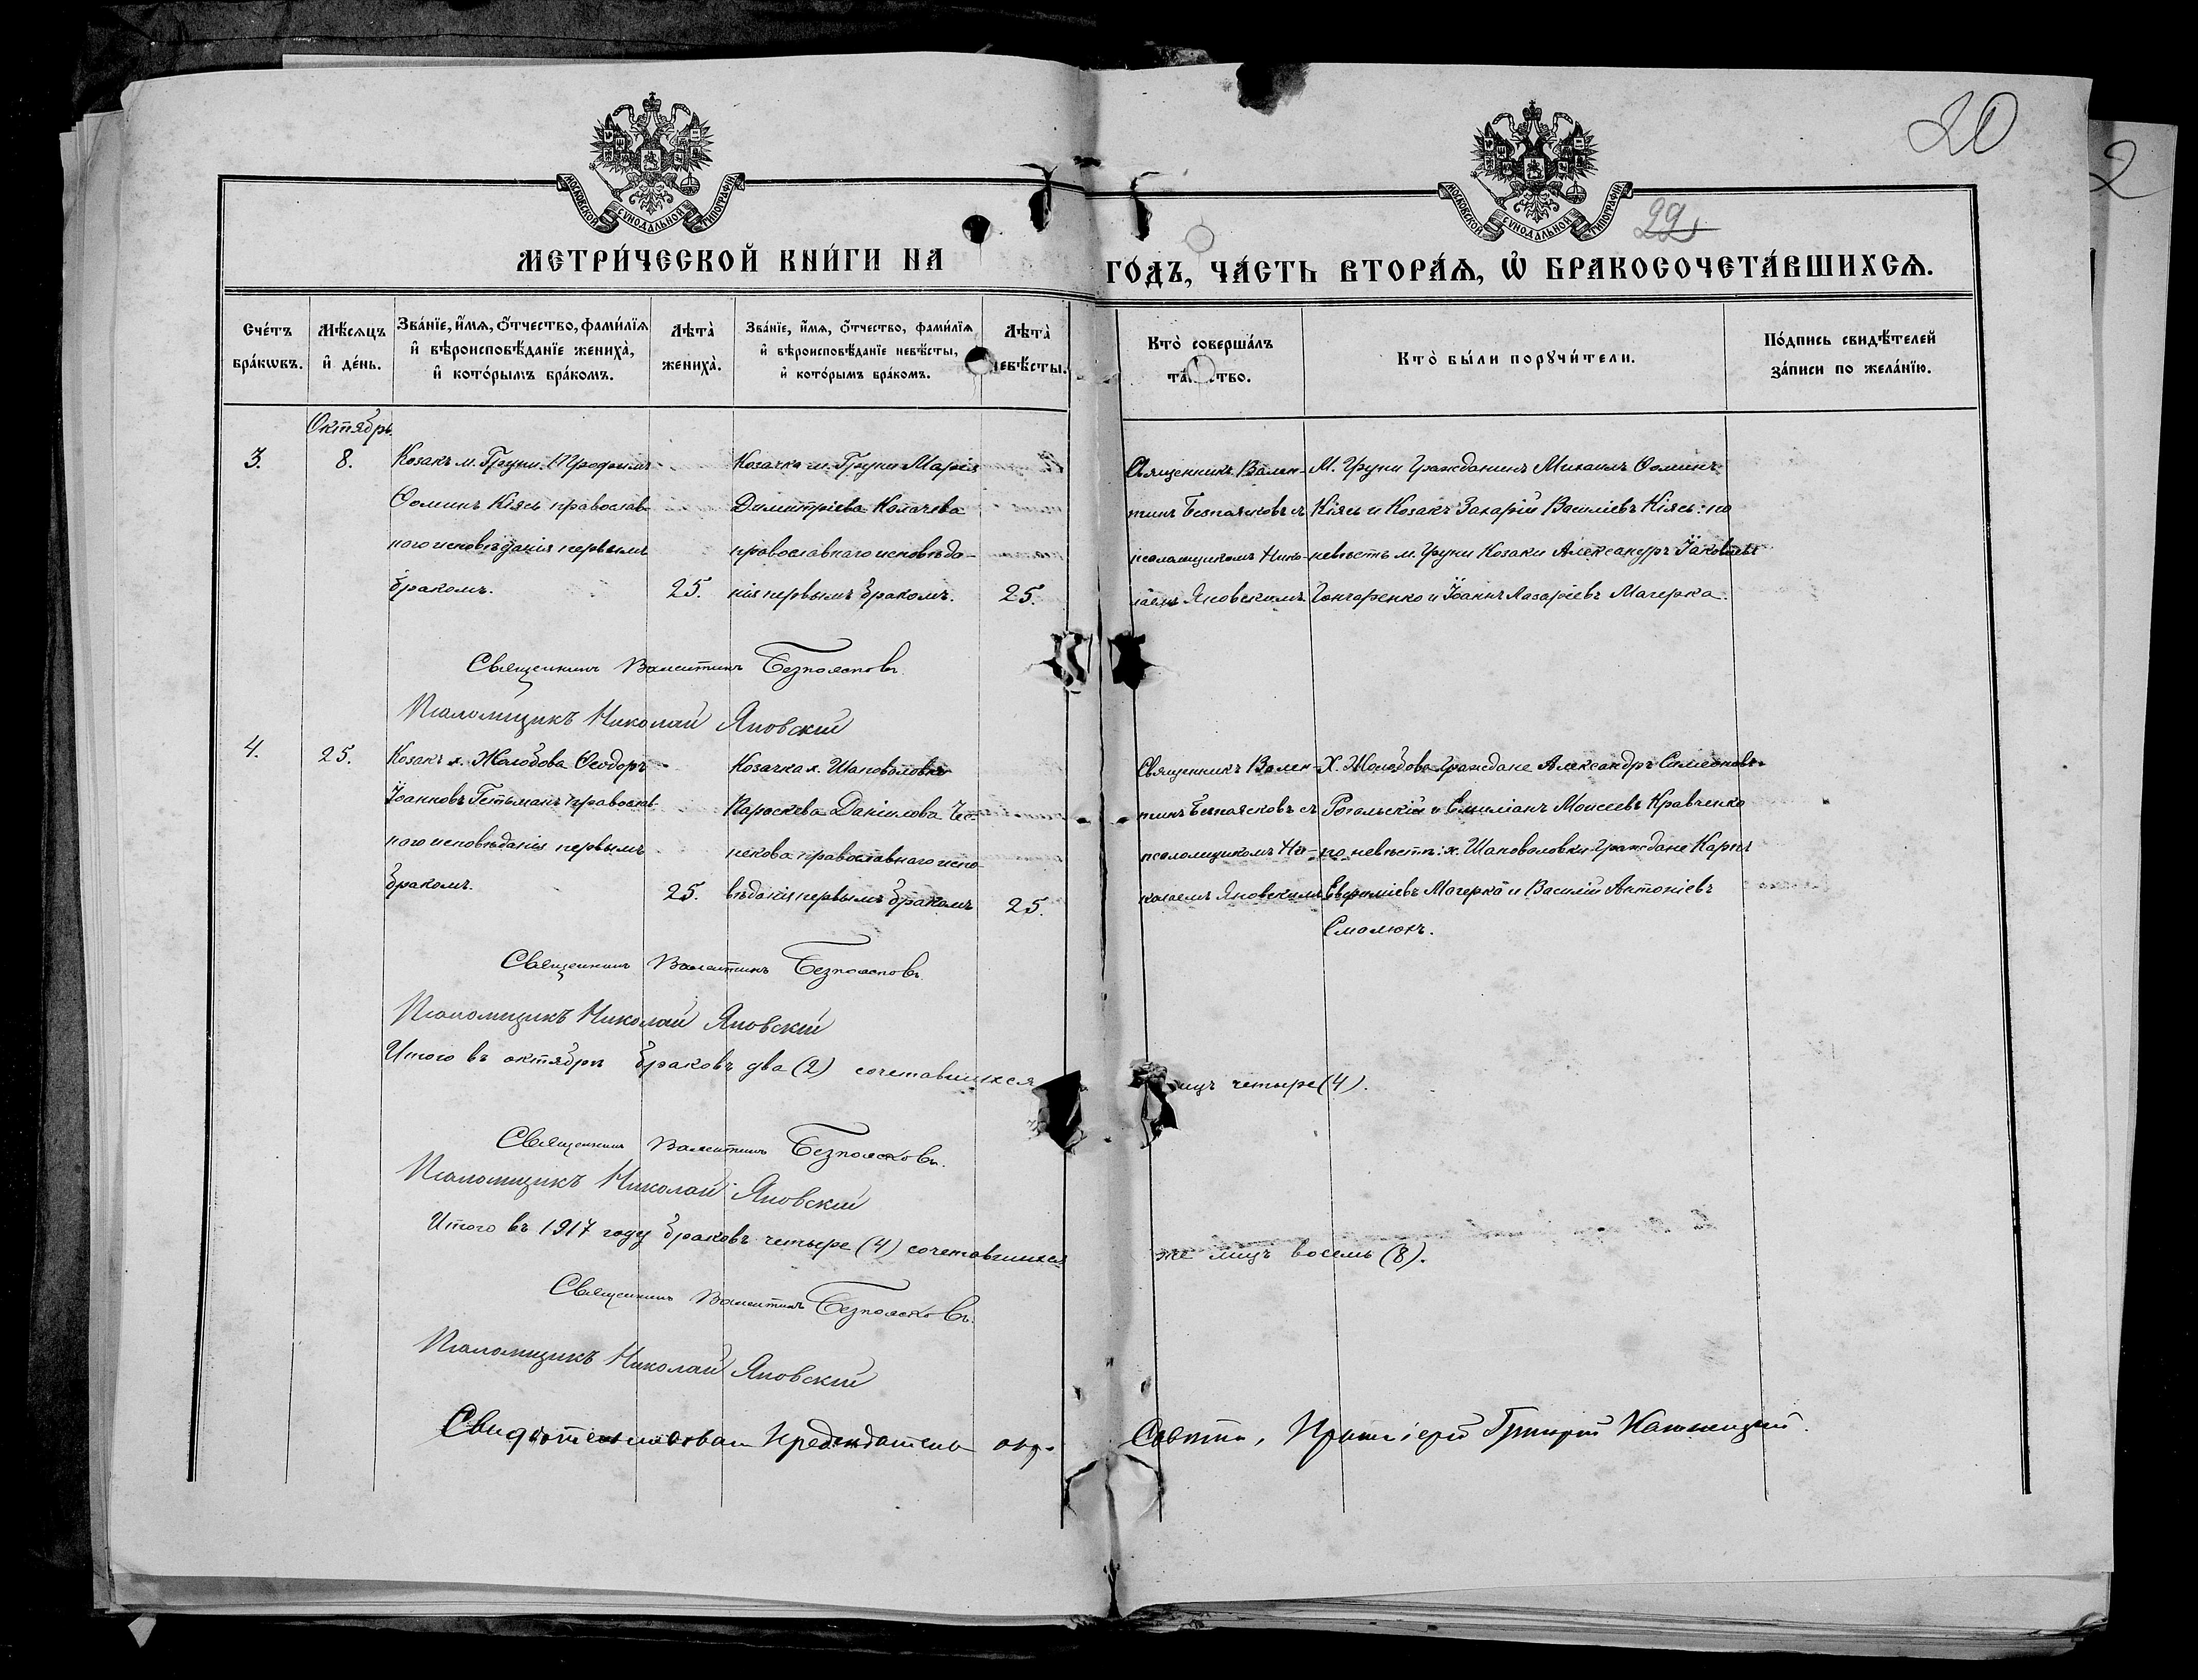 20
2
МОСКОВСКОЙ СѴНОДАЛЬНОЙ ТИПОГРАФІИ
МОСКОВСКОЙ СѴНОДАЛЬНОЙ ТИПОГРАФІИ
29
МЕТРИ́ЧЕСКОЙ КНИ́ГИ НА
ГО́ДЪ, ЧА́СТЬ ВТОРА́Ѧ, Ѽ БРАКОСОЧЕТА́ВШИХСѦ.
Сче́тъ
бра́кѡвъ.
Мѣ́сѧцъ
и҆ де́нь.
Зва́нїе, и҆́мѧ, ѻ҆́тчество, фами́лїѧ
и҆ вѣроисповѣ́данїе жениха̀,
и҆ кото́рымъ бра́комъ.
Лѣта̀
жениха̀.
Зва́нїе, и҆́мѧ, ѻ҆́тчество, фами́лїѧ
и҆ вѣроисповѣ́данїе невѣ́сты,
и҆ кото́рымъ бра́комъ.
Лѣта̀
невѣ́сты.
Кто̀ соверша́лъ
та тво.
Кто̀ бы́ли порꙋчи́тели.
По́дпись свидѣ́телей
за́писи по жела́нїю.
Октябрь
3.
8.
Козакъ м. Груни Трофимъ
Ѳоминъ Кіясь православ-
наго исповѣданія первымъ
бракомъ.
25.
Козачка м. Груни Марія
Димитріева Колачева
православнаго исповѣда-
нія первымъ бракомъ.
25.
Священникъ Вален-
тинъ Безпаясковъ съ
псаломщикомъ Нико-
лаемъ Яновскимъ
М. Груни Гражданинъ Михаилъ Ѳоминъ
Кіясь и Козакъ Захарій Василіевъ Кіясь: по
невѣстѣ м. Груни Козаки Александръ Іаковлевъ
Гончаренко и Іоаннъ Лазаріевъ Магерка.
Священникъ Валентинъ Безпоясковъ
Псаломщикъ Николай Яновскій
4.
25.
Козакъ х. Жолобова Ѳеодоръ
Іоанновъ Гетьманъ православ-
наго исповѣданія первымъ
бракомъ.
25.
Козачка х. Шаповаловки
Параскева Даніилова Чес-
нокова православнаго испо-
вѣданія первымъ бракомъ
25.
Священникъ Вален-
тинъ Безпаясковъ съ
псаломщикомъ Ни-
колаемъ Яновскимъ
Х. Жолобова Граждане Александръ Симеоновъ
Рогальскій и Емиліанъ Моисеевъ Кравченко
по невѣстѣ: х. Шаповаловки Граждане Карпъ
Евфиміевъ Магерка и Василій Антоніевъ
Смолюкъ.
Священникъ Валентинъ Безпоясковъ
Псаломщикъ Николай Яновскій
Итого въ октябрѣ браковъ два (2) сочетавшихся
лицъ четыре (4).
Священникъ Валентинъ Безпоясковъ.
Псаломщикъ Николай Яновскій
Итого въ 1917 году браковъ четыре (4) сочетавшихся
же лицъ восемь (8).
Священникъ Валентинъ Безпоясковъ.
Псаломщикъ Николай Яновскій
Свидѣтельствовалъ Предсѣдатель
Совѣта, Протоіерей Григорій